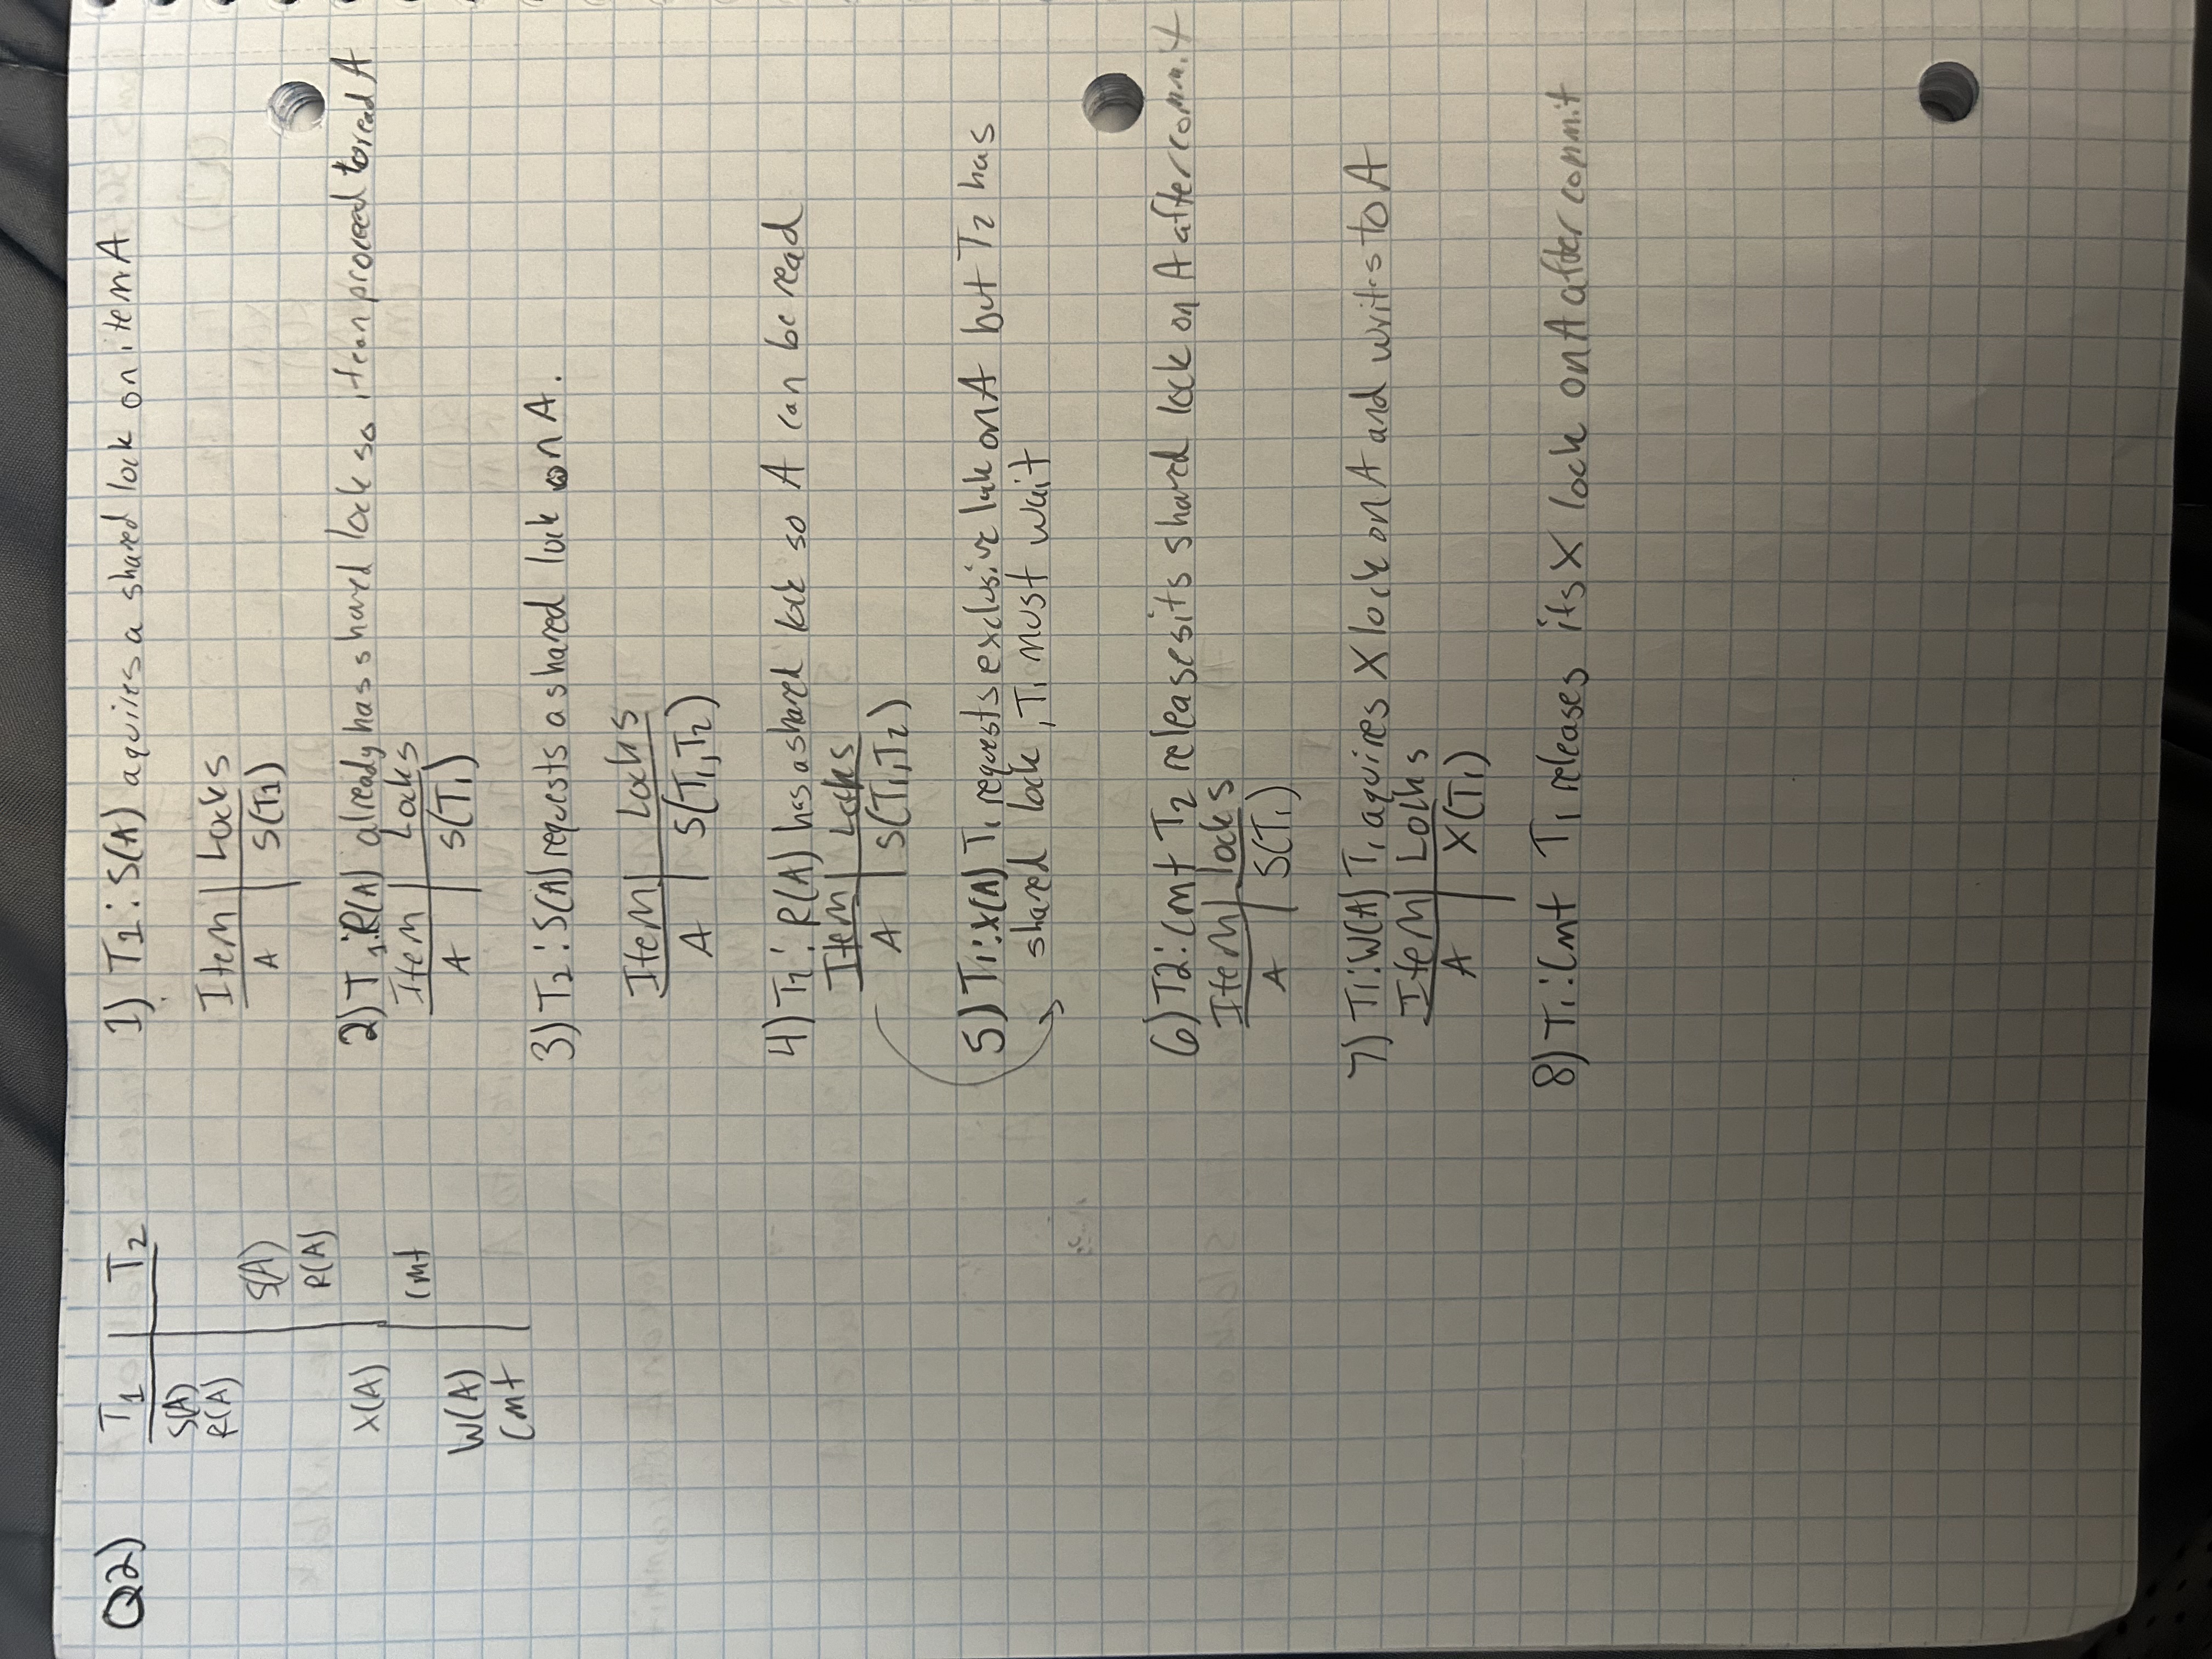 Q2)
T1 | T2
S(A)
R(A)
S(A)
R(A)
X(A)
Cmt
W(A)
Cmt
1) T1: S(A) aquires a shared lock on item A
Item | Locks
A | S(T1)
2) T1: R(A) already has shared lock so it can proceed to read A
Item | Locks
A | S(T1)
3) T2: S(A) requests a shared lock on A.
Item | Locks
A | S(T1,T2)
4) T2: R(A) has a shared lock so A can be read
Item | Locks
A | S(T1,T2)
5) T1: X(A) T1 requests exclusive lock on A but T2 has
shared lock, T1 must wait
6) T2: Cmt T2 releases its shared lock on A after commit
Item | locks
A | S(T1)
7) T1: W(A) T1 aquires X lock on A and writes to A
Item | Locks
A | X(T1)
8) T1: Cmt T1 releases its X lock on A after commit